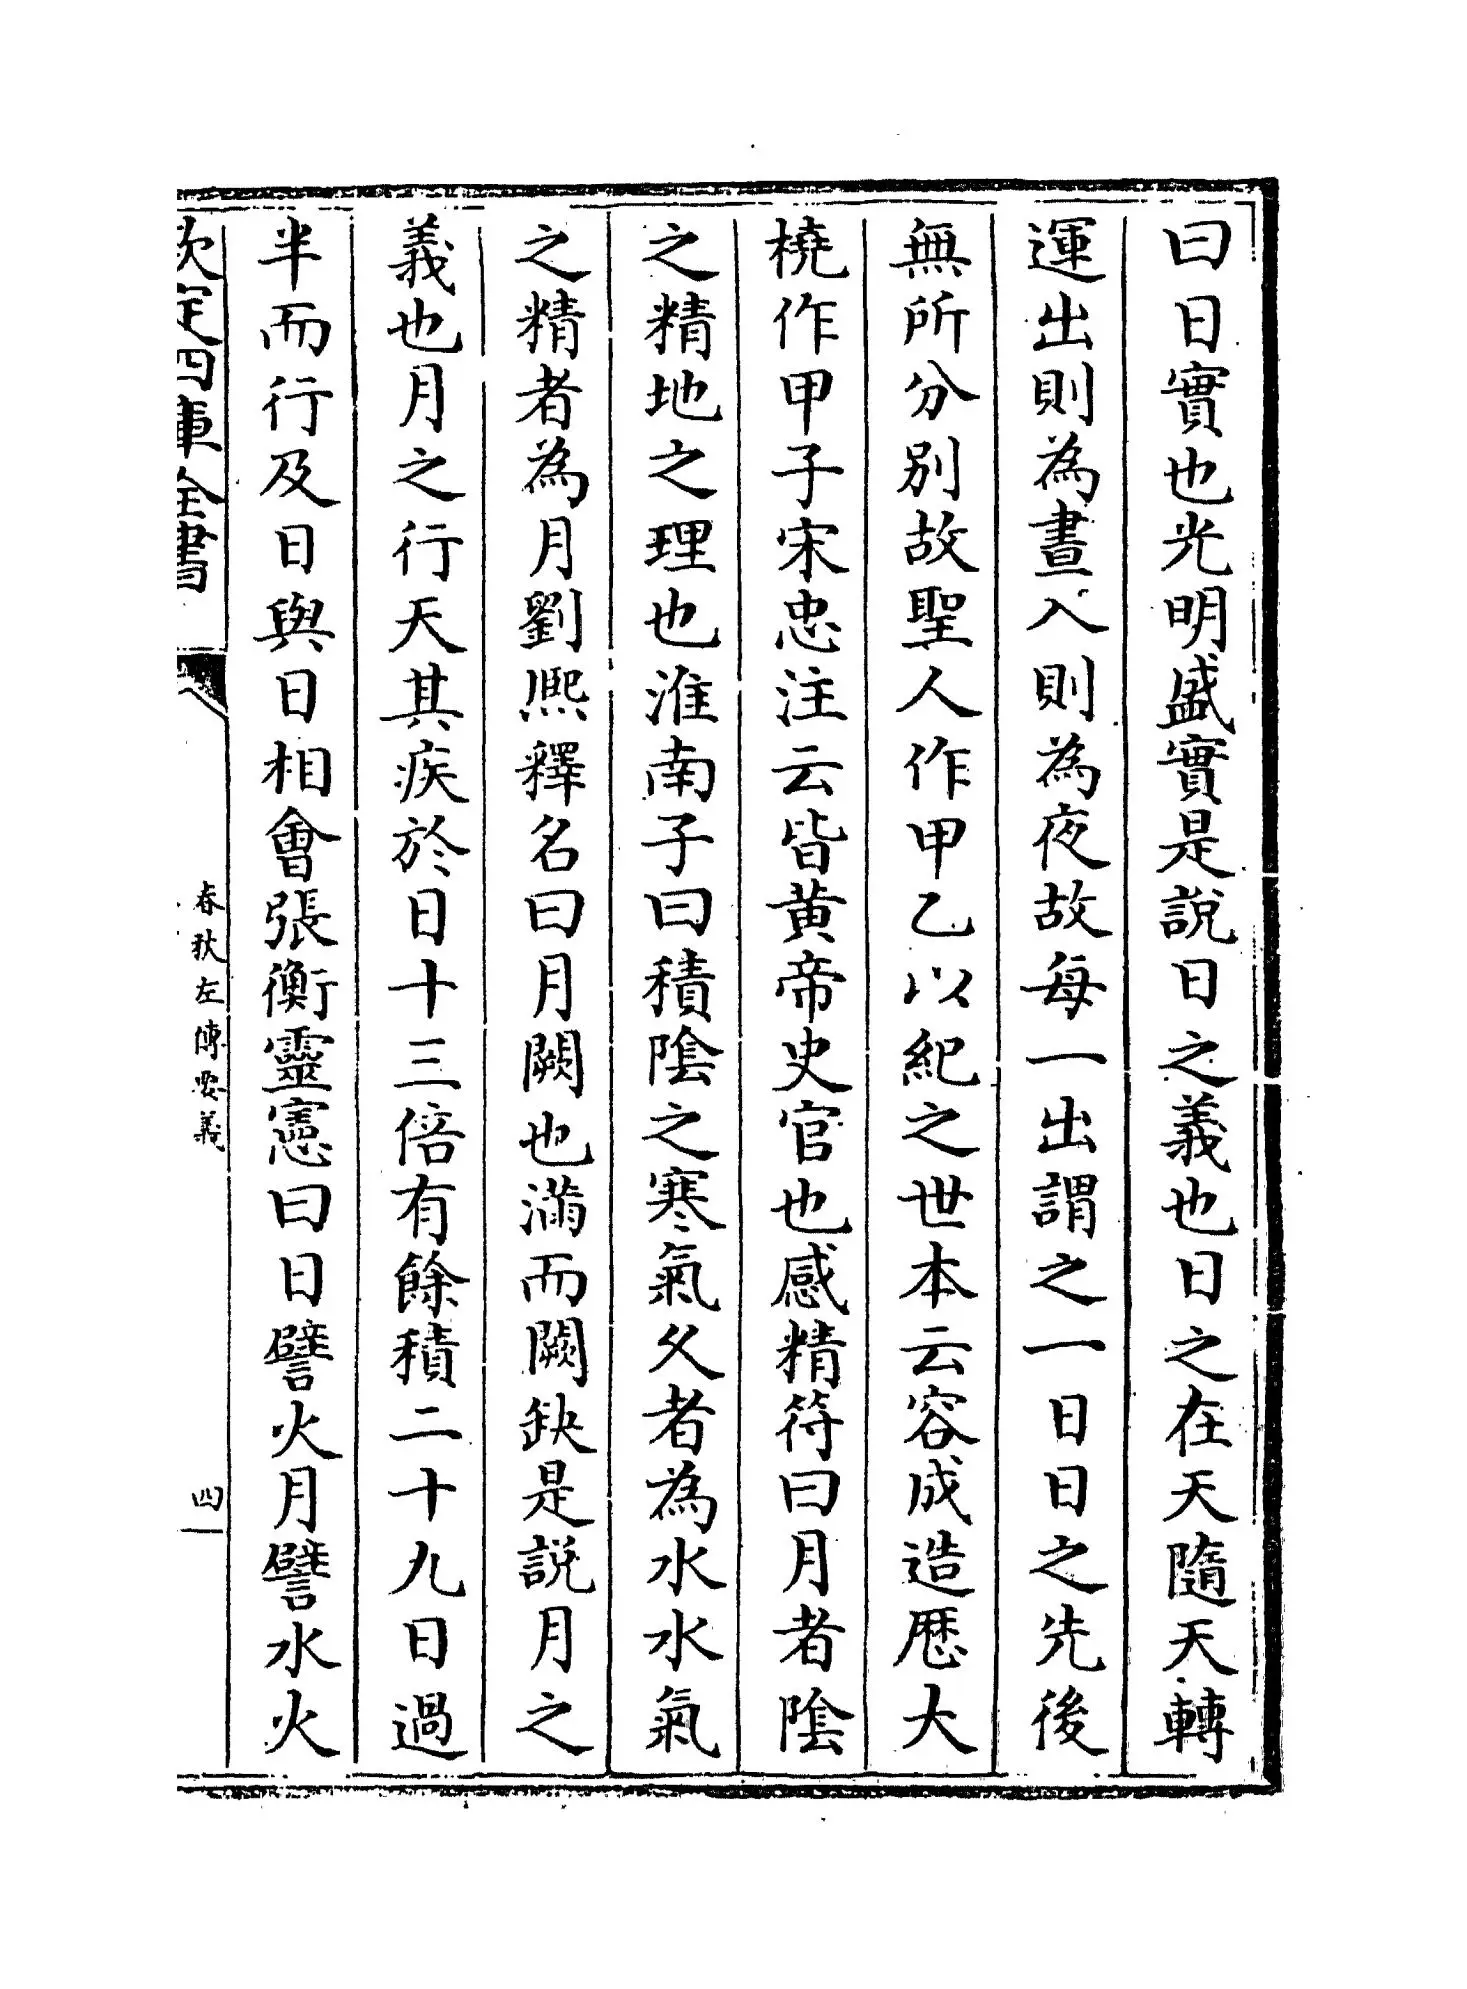 曰日實也光明盛實是說日之義也日之在天隨天轉
運出則為晝入則為夜故每一出謂之一日日之先後
無所分別故聖人作甲乙以紀之世本云容成造厯大
橈作甲子宋忠注云皆黄帝史官也感精符曰月者隂
之精地之理也淮南子曰積隂之寒氣久者為水水氣
之精者為月劉熈釋名曰月闕也滿而闕缺是說月之
義也月之行天其疾於日十三倍有餘積二十九日過
半而行及日與日相會張衡靈憲曰日譬火月譬水火
欽定四庫全書
春秋左傳要義
四